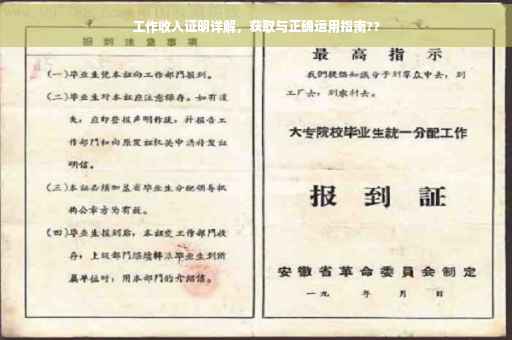 工作收入证明详解，获取与正确运用指南??
报到注意事项
(一)毕业生凭本证向工作部门报到。
(二)毕业生对本证应注意保存。如有遗
失，应即登报声明作废，并报告工
作部门和向原发证机关申请补发证
明信。
(三)本证必须加盖省毕业生分配领导机
构公章方为有效。
(四)毕业生报到后，本证交工作部门收
存；上级部门继续转派毕业生到所
属单位时，用本部门的介绍信。
最高指示
我们提倡知识分子到群众中去，到
工厂去，到农村去。
大专院校毕业生统一分配工作
报到証
安徽省革命委员会制定
一九 年 月 日